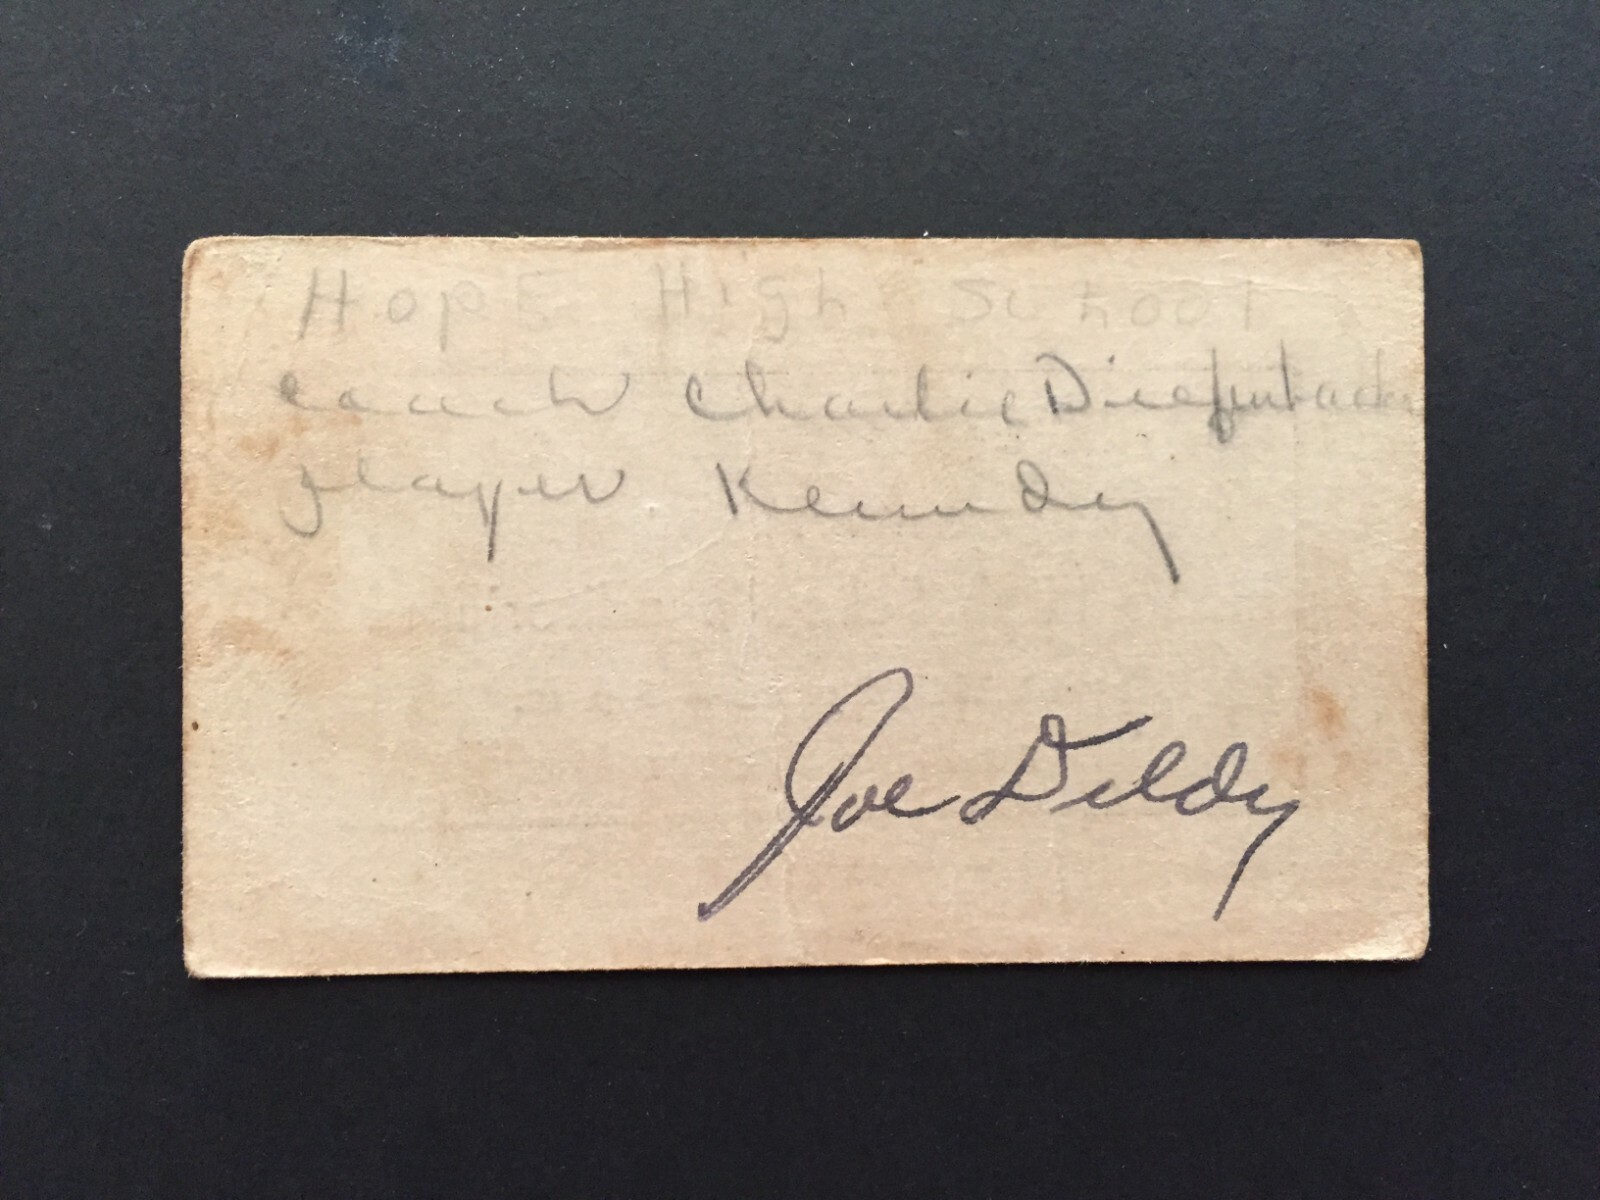 HopE High School
coach Charlie Diefenbach
player Kennedy
Joe Dildy